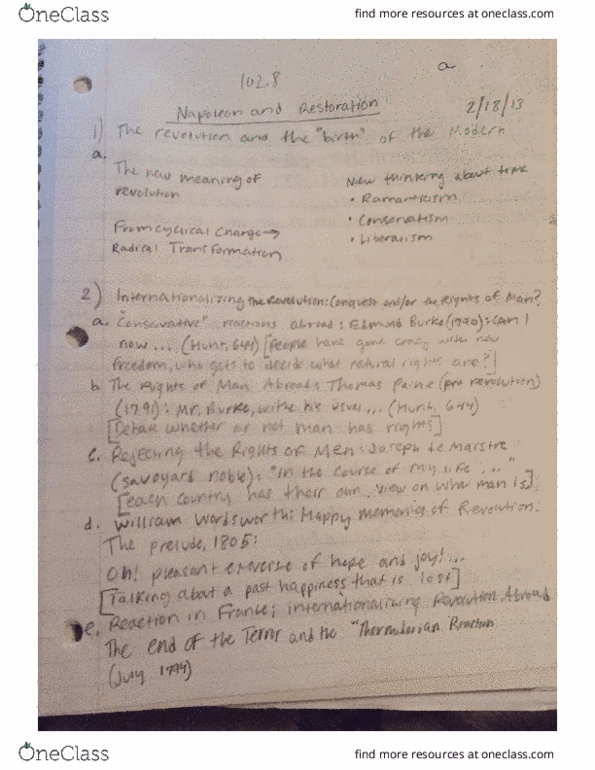 OneClass
find more resources at oneclass.com
a
102.8
Napoleon and Restoration
2/18/13
1) The revolution and the "birth" of the Modern
a.
The new meaning of
revolution
New thinking about time
• Romanticism
• Conservatism
• Liberalism
From cyclical change→
Radical Transformation
2) Internationalizing the Revolution: Conquest and/or the Rights of Man?
a. "Conservative" reactions abroad: Edmund Burke (1790): Can I
now... (Hunt, 644) [People have gone crazy with new
freedom, who gets to decide what natural rights are?]
b The Rights of Man Abroad: Thomas Paine (pro revolution)
(1791): Mr. Burke, withe his usual... (Hunt, 644)
[Debate whether or not man has rights]
c. Rejecting the Rights of Men: Joseph de Maistre
(savoyard noble): "In the course of my life..."
[each country has their own view on what man is]
d. William Wordsworth: Happy Memories of Revolution:
The prelude, 1805:
Oh! pleasant exercise of hope and joy!...
[Talking about a past happiness that is lost]
e. Reaction in France; internationalizing Revolution Abroad
The end of the Terror and the "Thermidorian Reaction
(July 1794)
OneClass
find more resources at oneclass.com